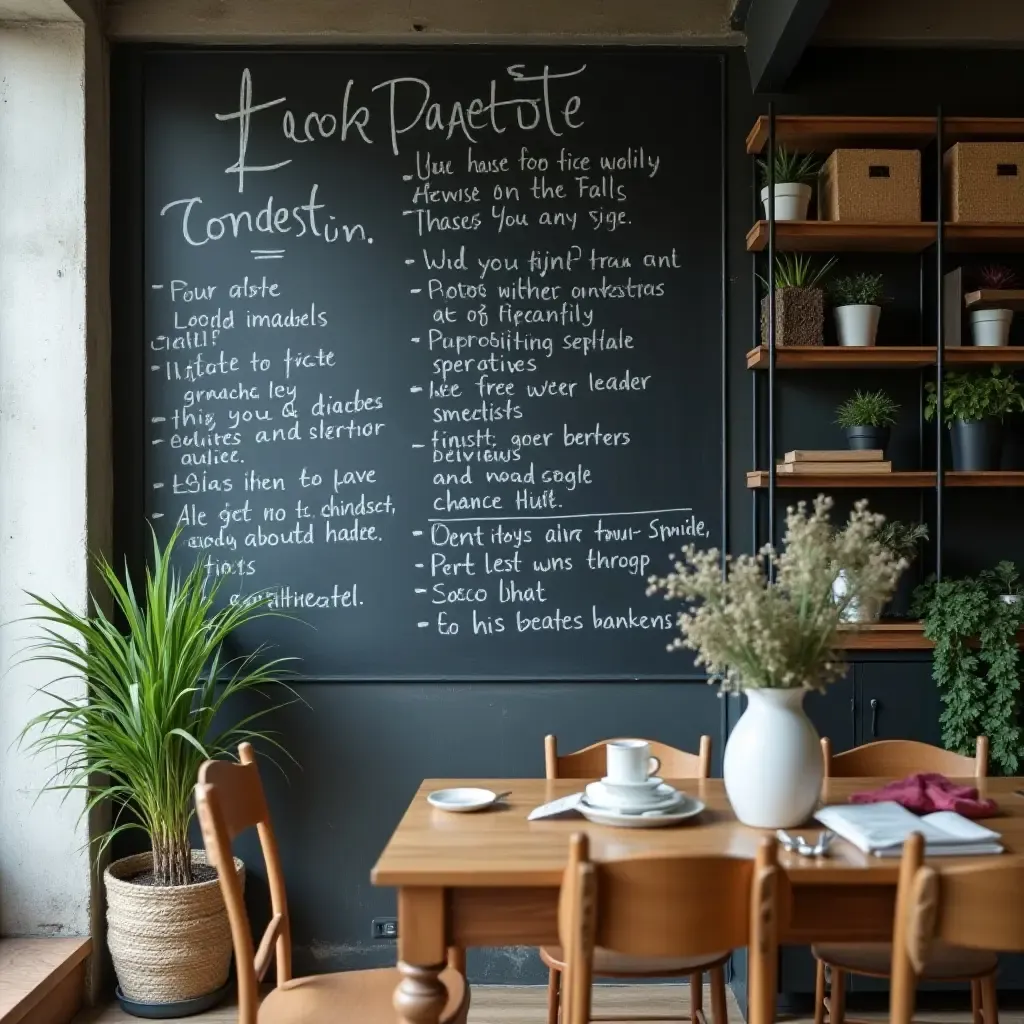 Lack Paactote
Condestin.
- Pour alste
Loodd imadels
- Ilitate to fricte
grnache ley
- this you & diacbes
- eculites and slertior
aulice.
- Lsias iten to pave
- Ale get no to chindsct,
aody aboutd hadee.
tiois
- Uue hase foo fice wolily
Hewise on the Falls
Thases You any sige.
- Wid you tijnP traw ant
- Potos wither onkestras
at of Fiecanfily
- Puprobiiting sephale
speratives
- Ise free weer leader
smectists
- finist: goer berters
beiviews
and woad sogle
chance Huit.
- Dent itoys airr towr Smide,
- Pert lest wns throgp
- Soeco bhat
- Eo his beates bankens